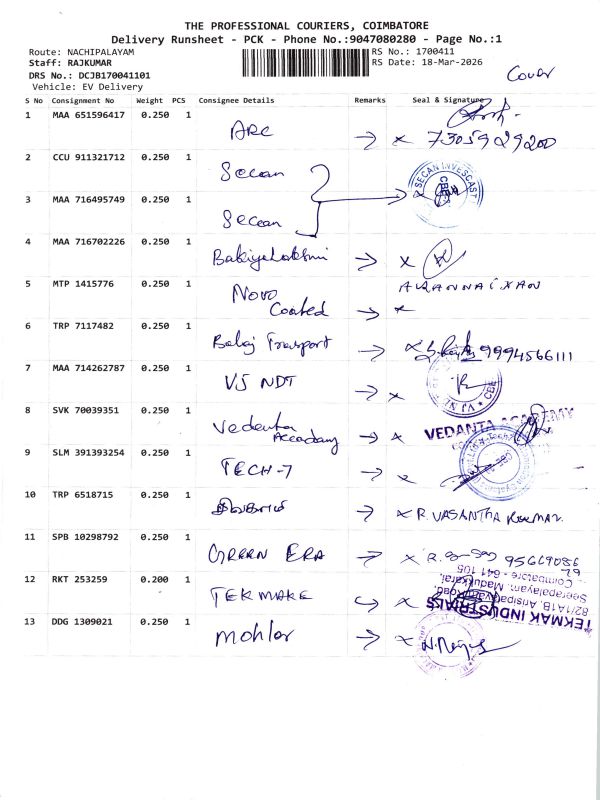 THE PROFESSIONAL COURIERS, COIMBATORE
Delivery Runsheet - PCK - Phone No.:9047080280 - Page No.:1
Route: NACHIPALAYAM
RS No.: 1700411
Staff: RAJKUMAR
RS Date: 18-Mar-2026
DRS No.: DCJB170041101
Vehicle: EV Delivery
Cover
S No Consignment No Weight PCS Consignee Details Remarks Seal & Signature
1 MAA 651596417 0.250 1
ARC → x 7305929200
2 CCU 911321712 0.250 1
Secan
SECAN INVESCAST
3 MAA 716495749 0.250 1
Secan
4 MAA 716702226 0.250 1
Bakiyalakshmi → x
5 MTP 1415776 0.250 1
Novo
Coated → x
6 TRP 7117482 0.250 1
Balaj Trasport → x 9994566111
7 MAA 714262787 0.250 1
VJ NDT → x
8 SVK 70039351 0.250 1
Vedanta
Accadamy → x
VEDANTA ACADEMY
9 SLM 391393254 0.250 1
TECH-7 → x
10 TRP 6518715 0.250 1
→ x R. VASANTHA KUMAR
11 SPB 10298792 0.250 1
GREEN ERA → x
12 RKT 253259 0.200 1
TEKMAKE → x
TEKMAK INDUSTRIALS
82/1A1B, Arisipalayam Road,
Seerapalayam, Madukkarai,
Coimbatore - 641 105
13 DDG 1309021 0.250 1
Mohlar → x